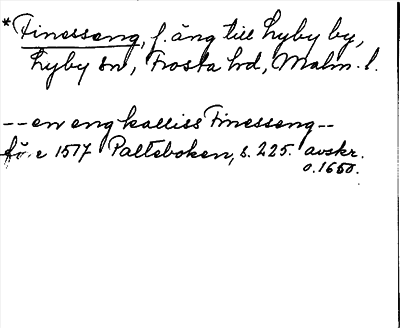 *Finesseng, f. äng till Hyby by,
Hyby sn, Frosta hd, Malm. l.
-- en eng kalliss Finesseng --
fö. e 1517 Palteboken, s. 225. avskr.
o. 1650.